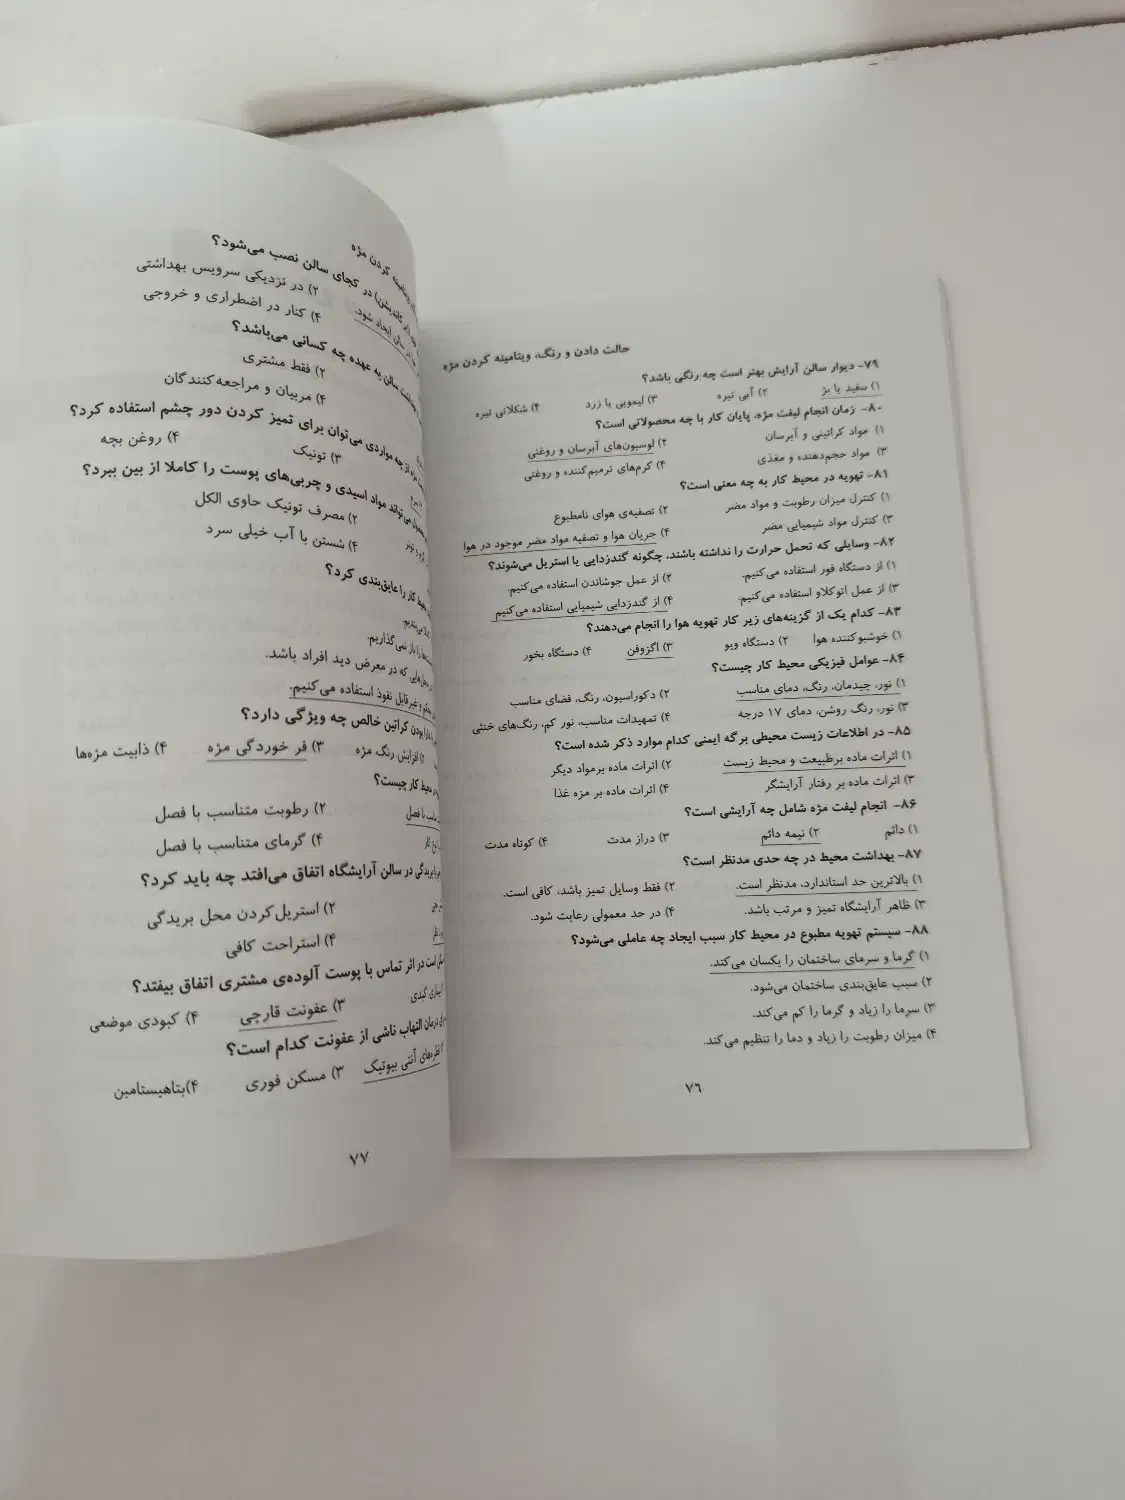 حالت دادن و رنگ، ویتامینه کردن مژه
۷۹- دیوار سالن آرایش بهتر است چه رنگی باشد؟
۱) سفید یا بژ ۲) آبی تیره ۳) لیمویی یا زرد ۴) شکلاتی تیره
۸۰- زمان انجام لیفت مژه، پایان کار با چه محصولاتی است؟
۱) مواد کراتینی و آبرسان ۲) لوسیون‌های آبرسان و روغنی
۳) مواد حجم‌دهنده و مغذی ۴) کرم‌های ترمیم‌کننده و روغنی
۸۱- تهویه در محیط کار به چه معنی است؟
۱) کنترل میزان رطوبت و مواد مضر ۲) تصفیه‌ی هوای نامطبوع
۳) کنترل مواد شیمیایی مضر ۴) جریان هوا و تصفیه مواد مضر موجود در هوا
۸۲- وسایلی که تحمل حرارت را نداشته باشند، چگونه گندزدایی یا استریل می‌شوند؟
۱) از دستگاه فور استفاده می‌کنیم. ۲) از عمل جوشاندن استفاده می‌کنیم.
۳) از عمل اتوکلاو استفاده می‌کنیم. ۴) از گندزدایی شیمیایی استفاده می‌کنیم
۸۳- کدام یک از گزینه‌های زیر کار تهویه هوا را انجام می‌دهند؟
۱) خوشبوکننده هوا ۲) دستگاه ویو ۳) اگزوفن ۴) دستگاه بخور
۸۴- عوامل فیزیکی محیط کار چیست؟
۱) نور، چیدمان، رنگ، دمای مناسب ۲) دکوراسیون، رنگ، فضای مناسب
۳) نور، رنگ روشن، دمای ۱۷ درجه ۴) تمهیدات مناسب، نور کم، رنگ‌های خنثی
۸۵- در اطلاعات زیست محیطی برگه ایمنی کدام موارد ذکر شده است؟
۱) اثرات ماده برطبیعت و محیط زیست ۲) اثرات ماده برمواد دیگر
۳) اثرات ماده بر رفتار آرایشگر ۴) اثرات ماده بر مزه غذا
۸۶- انجام لیفت مژه شامل چه آرایشی است؟
۱) دائم ۲) نیمه دائم ۳) دراز مدت ۴) کوتاه مدت
۸۷- بهداشت محیط در چه حدی مدنظر است؟
۱) بالاترین حد استاندارد، مدنظر است. ۲) فقط وسایل تمیز باشد، کافی است.
۳) ظاهر آرایشگاه تمیز و مرتب باشد. ۴) در حد معمولی رعایت شود.
۸۸- سیستم تهویه مطبوع در محیط کار سبب ایجاد چه عاملی می‌شود؟
۱) گرما و سرمای ساختمان را یکسان می‌کند.
۲) سبب عایق‌بندی ساختمان می‌شود.
۳) سرما را زیاد و گرما را کم می‌کند.
۴) میزان رطوبت را زیاد و دما را تنظیم می‌کند.
۷۶
ویتامینه کردن مژه
در کجای سالن نصب می‌شود؟
۲) در نزدیکی سرویس بهداشتی
ایجاد شود. ۴) کنار در اضطراری و خروجی
سالن به عهده چه کسانی می‌باشد؟
۲) فقط مشتری
۴) مربیان و مراجعه‌کنندگان
از چه مواردی می‌توان برای تمیز کردن دور چشم استفاده کرد؟
۳) تونیک ۴) روغن بچه
می‌تواند مواد اسیدی و چربی‌های پوست را کاملا از بین ببرد؟
۲) مصرف تونیک حاوی الکل
۴) شستن با آب خیلی سرد
محیط کار را عایق‌بندی کرد؟
می‌بندیم.
را باز نمی‌گذاریم.
که در معرض دید افراد باشد.
و غیرقابل نفوذ استفاده می‌کنیم.
بودن کراتین خالص چه ویژگی دارد؟
۲) افزایش رنگ مژه ۳) فر خوردگی مژه ۴) ذابیت مژه‌ها
محیط کار چیست؟
با فصل ۲) رطوبت متناسب با فصل
۴) گرمای متناسب با فصل
بریدگی در سالن آرایشگاه اتفاق می‌افتد چه باید کرد؟
۲) استریل‌کردن محل بریدگی
۴) استراحت کافی
است در اثر تماس با پوست آلوده‌ی مشتری اتفاق بیفتد؟
بیماری کبدی ۳) عفونت قارچی ۴) کبودی موضعی
درمان التهاب ناشی از عفونت کدام است؟
قطره‌های آنتی بیوتیک ۳) مسکن فوری ۴)بتاهیستامین
۷۷